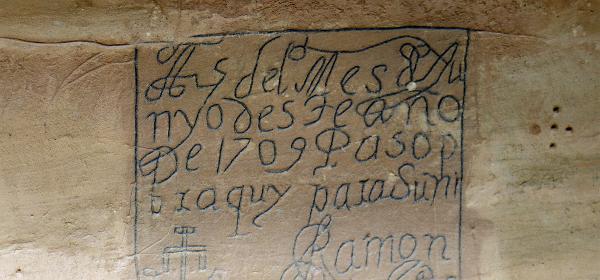 A 25 del Mes d Ju
nyo deste año
De 1709 Paso p
or aquy para Suñi
Ramon